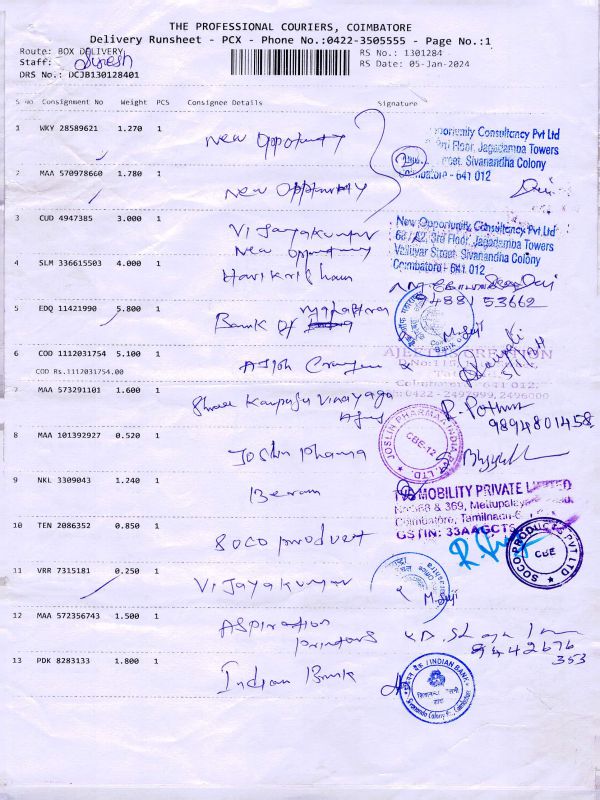 THE PROFESSIONAL COURIERS, COIMBATORE
Delivery Runsheet - PCX - Phone No.:0422-3505555 - Page No.:1
Route: BOX DELIVERY
RS No.: 1301284
Staff: Suresh
RS Date: 05-Jan-2024
DRS No.: DCJB130128401
S No Consignment No Weight PCS Consignee Details Signature
1 WKY 28589621 1.270 1 New Oppotunity
Opportunity Consultancy Pvt Ltd
3rd Floor, Jagadamba Towers
Street, Sivanandha Colony
Coimbatore - 641 012
2 MAA 570978660 1.780 1 New Opportunity
3 CUD 4947385 3.000 1 Vijayakumar
New Opportunity Consultancy Pvt Ltd
68 / A2, 3rd Floor, Jagadamba Towers
Valluvar Street, Sivanandha Colony
Coimbatore - 641 012
New Opportunity
4 SLM 336615503 4.000 1 Harikrishan
94881 53662
5 EDQ 11421990 5.800 1 Bank Of Maharastra
6 COD 1112031754 5.100 1
COD Rs.1112031754.00
AJEETHS CREATION
D.No:115,
Coimbatore - 641 012.
Ph:0422 - 2499999, 2496000
7 MAA 573291101 1.600 1 Shree Kanpagu Vinayaga
9894801458
8 MAA 101392927 0.520 1 Joslin Pharma
JOSLIN PHARMAA INDIA PVT. LTD.
CBE-12
9 NKL 3309043 1.240 1
MOBILITY PRIVATE LIMITED
No:368 & 369, Mettupalayam Road,
Coimbatore, Tamilnadu-6
GSTIN: 33AAGCT5
10 TEN 2086352 0.850 1 Soco product
SOCO PRODUCTS PVT LTD
CBE
11 VRR 7315181 0.250 1 Vijayakumar
12 MAA 572356743 1.500 1 Aspiration
Printers
9442676
353
13 PDK 8283133 1.800 1 Indian Bank
INDIAN BANK
Sivananda Colony Br., Coimbatore